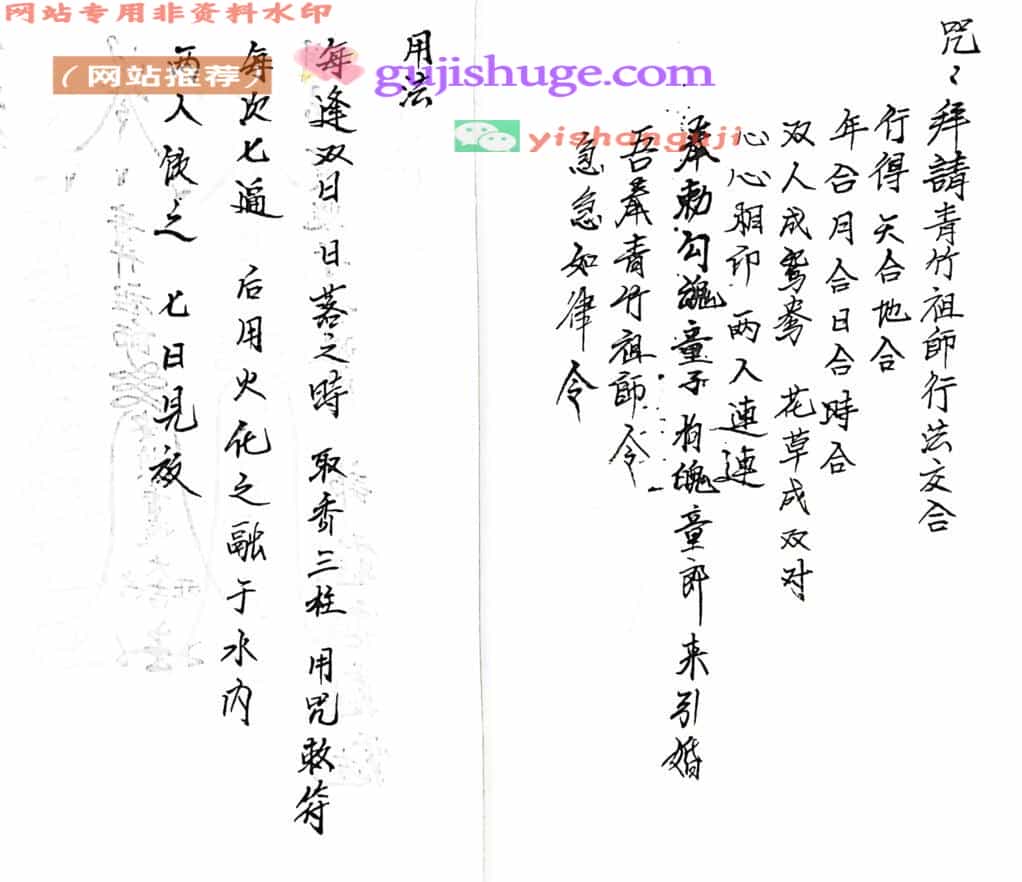 网站专用非资料水印
（网站推荐）
gujishuge.com
yishanguji
咒〻拜請青竹祖師行法交合
行得天合地合
年合月合日合時合
双人成鸳鸯 花草成双对
心心相印 两人連連
奉勅勾魂童子 拘魂童郎来引婚
吾奉青竹祖師令
急急如律令
用法
每逢双日 日落之時 取香三柱 用咒敕符
每次七遍 后用火化之融于水内
两人饮之 七日見效